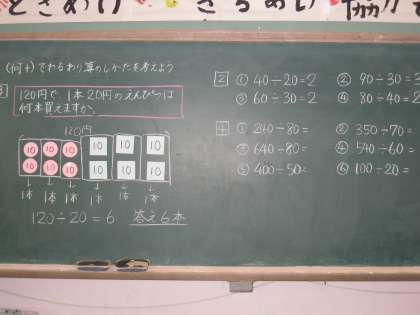 (何十)でわるわり算のしかたを考えよう
120円で、1本20円のえんぴつは
何本買えますか。
120円
10 10 10 10 10 10
10 10 10 10 10 10
1本 1本 1本 1本 1本 1本
120÷20=6 答え6本
2 ① 40÷20=2 ② 90÷30=3
③ 60÷30=2 ④ 80÷40=2
4 ① 240÷80= ② 350÷70=
③ 640÷80= ④ 540÷60=
⑤ 400÷50= ⑥ 100÷20=